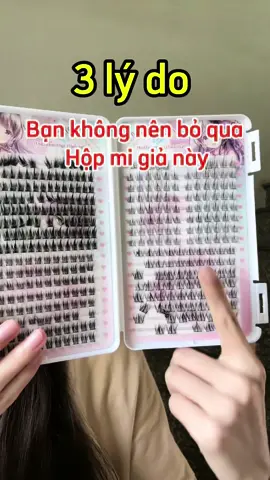 3 lý do
Bạn không nên bỏ qua
Hộp mi giả này